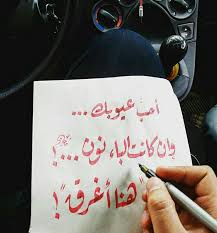 أحب عيوبك ...
وإن كانت الباء نون ... !
" هنا أغرق " !